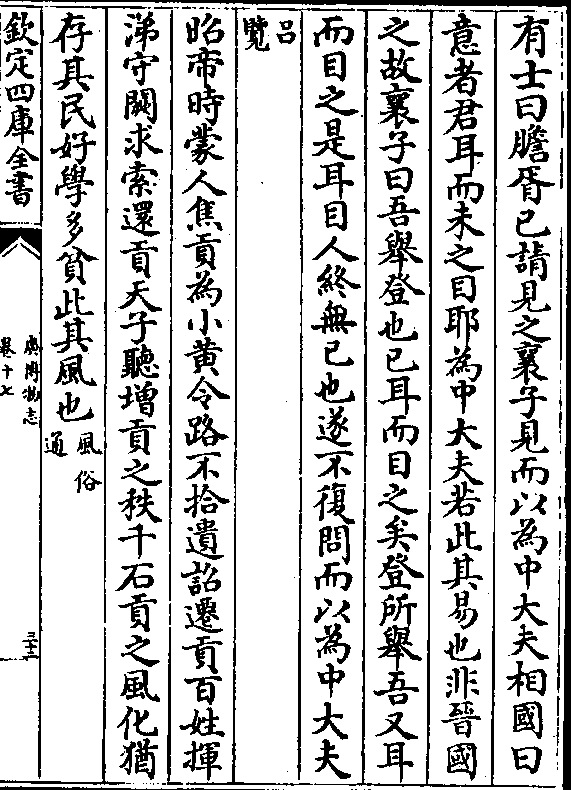 有士曰膽胥已請見之襄子見而以為中大夫相國曰
意者君耳而未之目耶為中大夫若此其易也非晉國
之故襄子曰吾舉登也已耳而目之矣登所舉吾又耳
而目之是耳目人終無已也遂不復問而以為中大夫
呂覽
昭帝時蒙人焦貢為小黃令路不拾遺詔遷貢百姓揮
涕守闕求索還貢天子聽增貢之秩千石貢之風化猶
存其民好學多貧此其風也風俗通
欽定四庫全書
廣博物志
卷十七
三十二